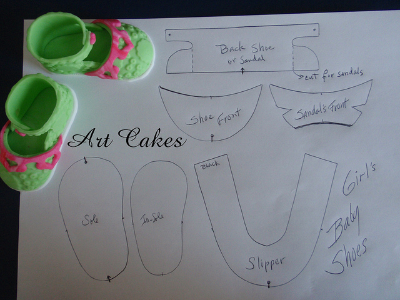 Back Shoe
or Sandal
→ cut for sandals
Shoe Front
Sandal's Front
Art Cakes
Sole
InSole
Back
Slipper
Girl's
Baby
Shoes